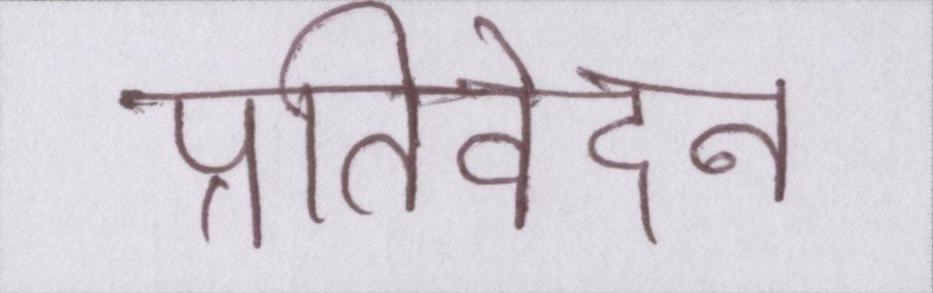 प्रतिवेदन